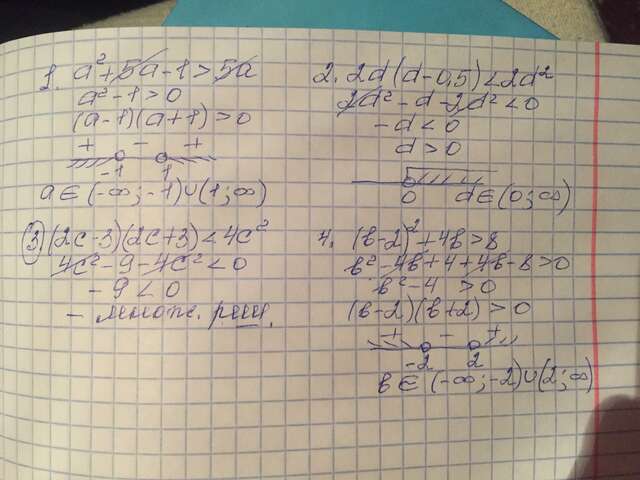 1. a²+5a-1>5a
a²-1>0
(a-1)(a+1)>0
+ - +
-1 1
a∈(-∞;-1)∪(1;∞)
2. 2d(d-0,5)<2d²
2d²-d-2d²<0
-d<0
d>0
0 d∈(0;∞)
3) (2c-3)(2c+3)<4c²
4c²-9-4c²<0
-9<0
- множ. реш.
4. (b-2)²+4b>8
b²-4b+4+4b-8>0
b²-4>0
(b-2)(b+2)>0
+ - +
-2 2
b∈(-∞;-2)∪(2;∞)